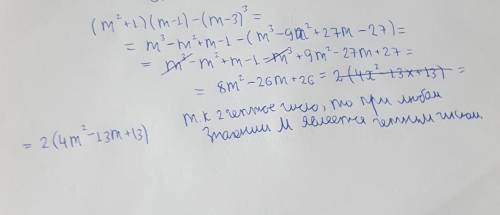 (m²+1)(m-1)-(m-3)³=
= m³-m²+m-1-(m³-9m²+27m-27)=
= m³-m²+m-1-m³+9m²-27m+27=
= 8m²-26m+26 = 2(4x²-13x+13) =
= 2(4m²-13m+13)
т.к 2 четное число, то при любом
значении м является четным числом.